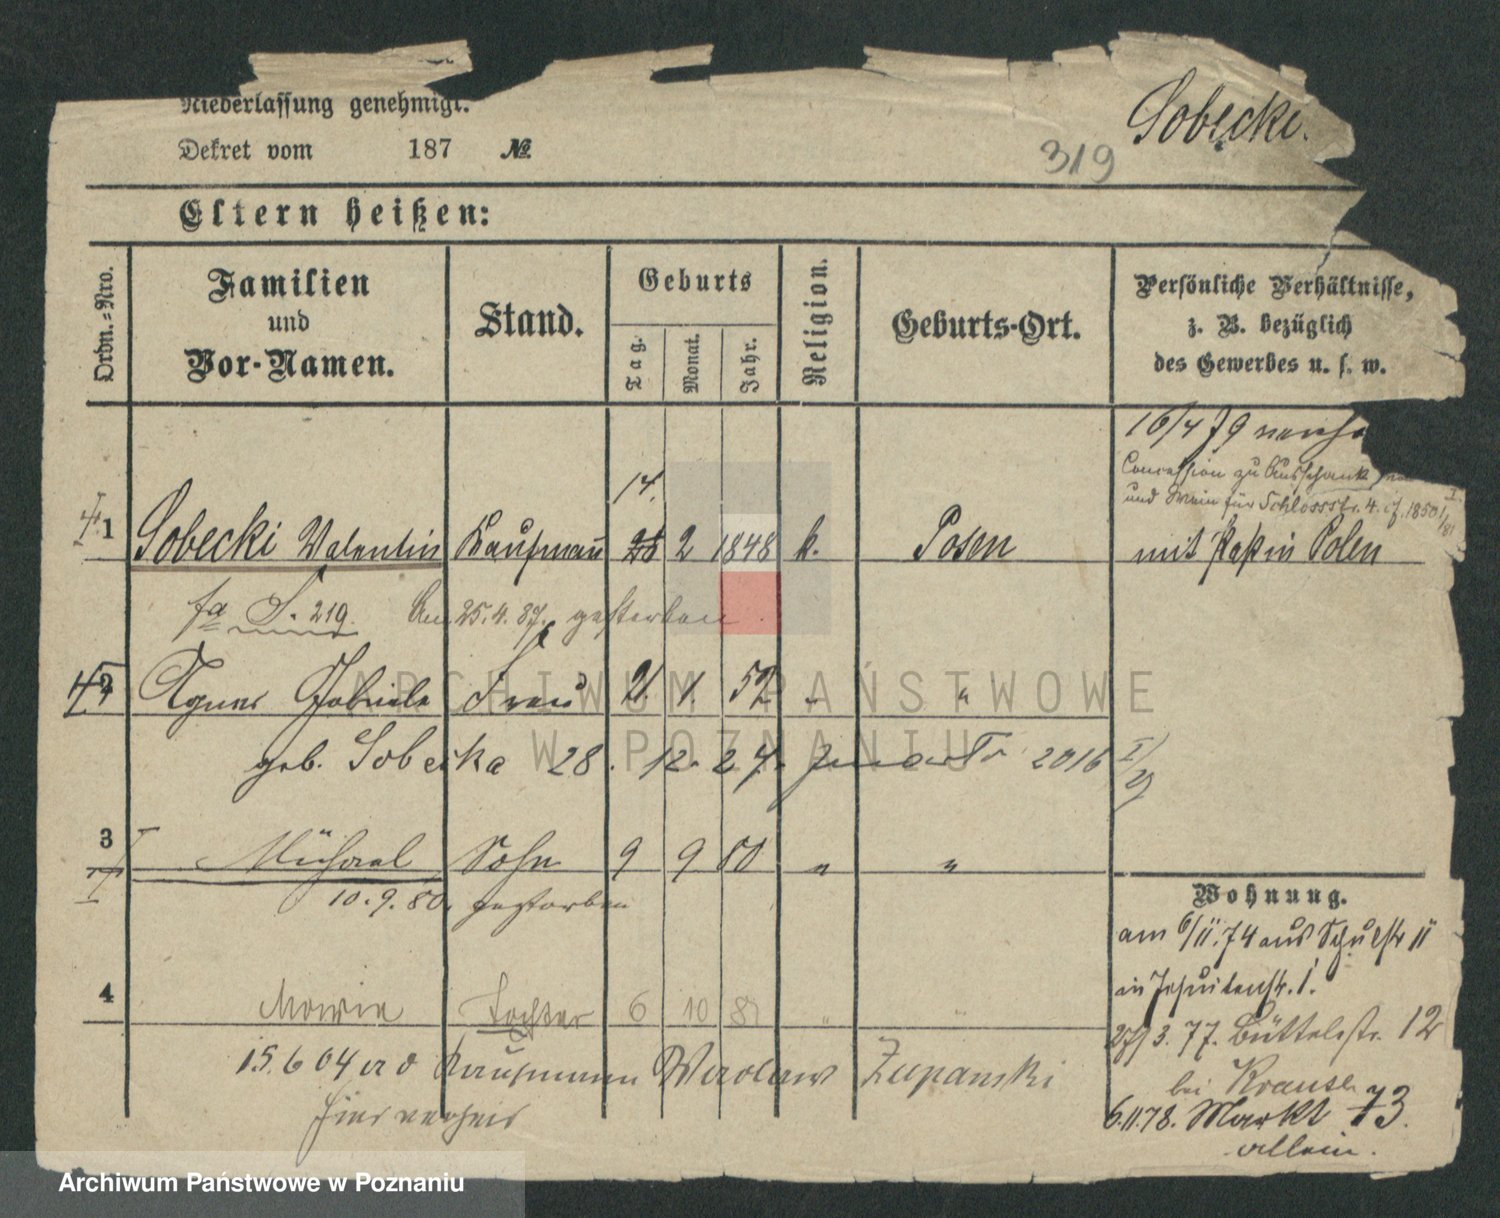 Niederlassung genehmigt.
Dekret vom 187 №
Sobecki.
319
Eltern heißen:
Ordn.-Nro.
Familien und Vor-Namen.
Stand.
Geburts
Tag.
Monat.
Jahr.
Religion.
Geburts-Ort.
Persönliche Verhältnisse,
z. B. bezüglich
des Gewerbes u. s. w.
16/4 79
Concession zu Ausschank
und Wein für Schlossstr. 4.
14.
1 Sobecki Valentin Kaufmann 28 2 1848 k. Posen mit Paß in Polen
219. Am 25.4.87. gestorben
2 Agnes Gabriele Frau 21. 1. 52 " "
geb. Sobecka 28. 12. 24. 2016
3 Michael Sohn 9 9 80 " "
10.9.80. gestorben
Wohnung.
am 6/11.74 aus Schulstr 11
in Jesuitenstr. 1.
4 Marie Tochter 6 10 81 " "
3.77. Büttelstr. 12
15.6 04 Kaufmann Waclaw Zupanski
bei Krause
hier verheir
6.11.78. Markt 73.
allein.
ARCHIWUM PAŃSTWOWE
W POZNANIU
Archiwum Państwowe w Poznaniu